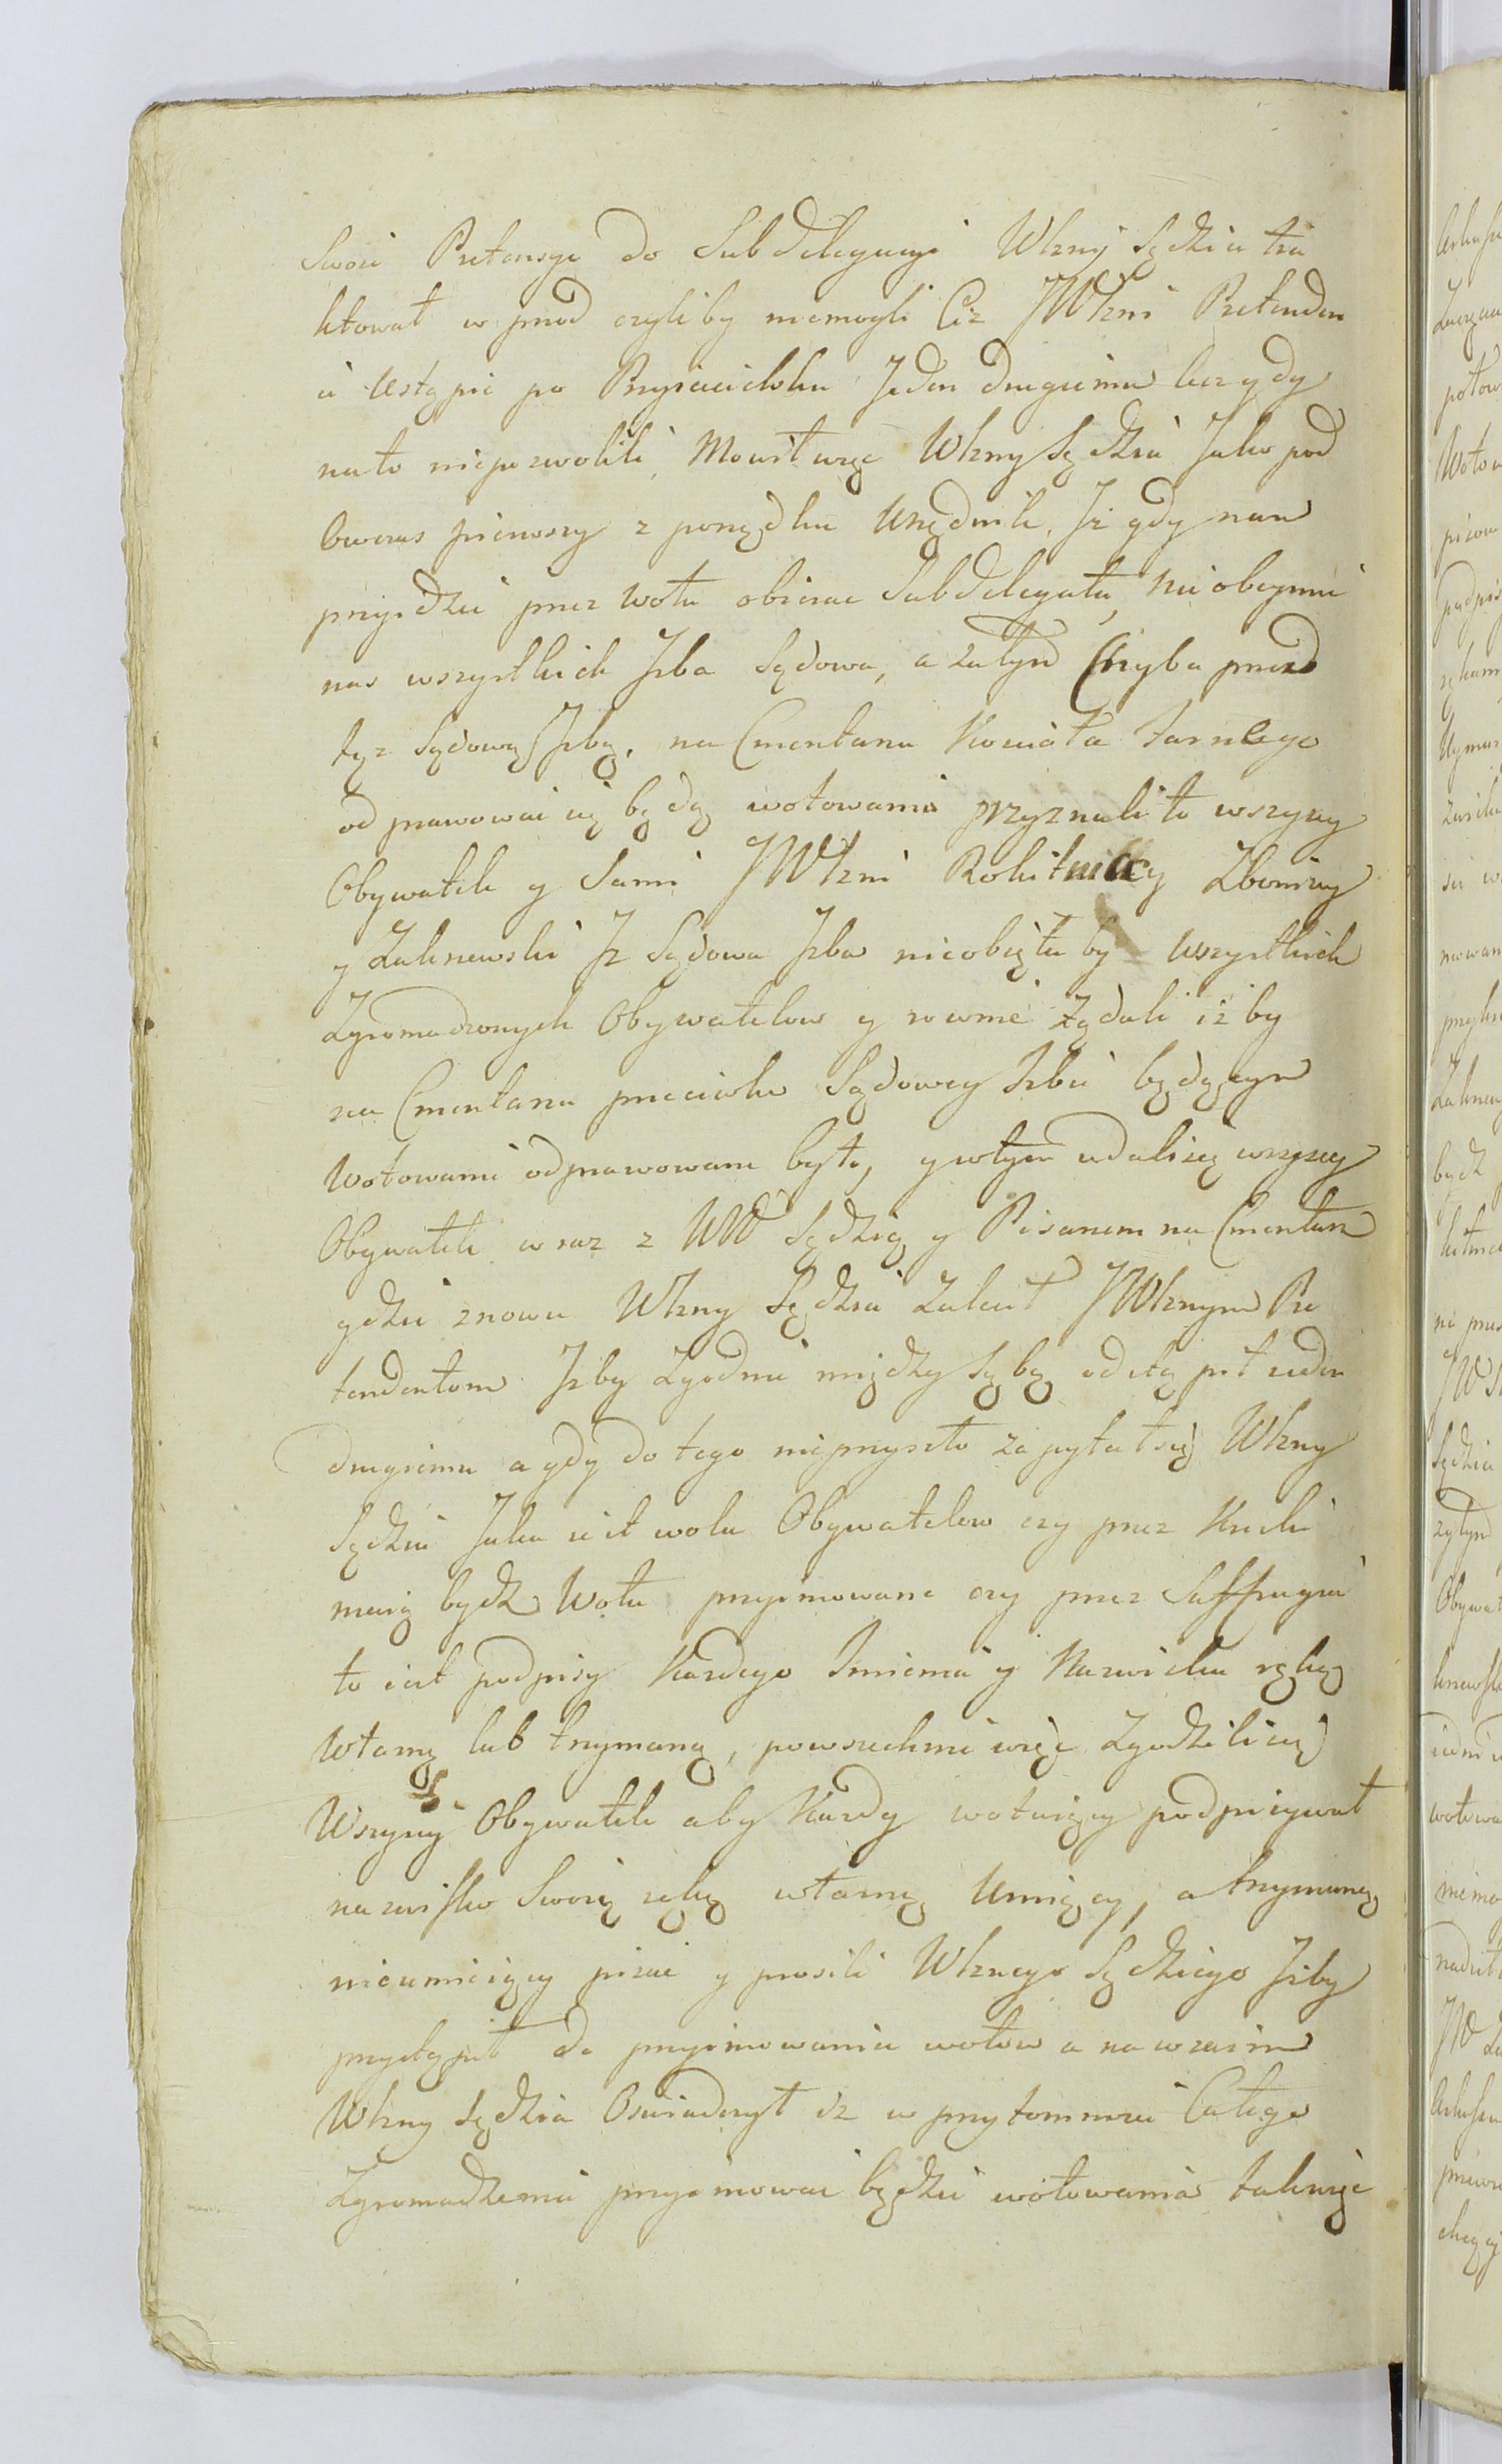 Swoie Pretensye do Subdelegacyi Wlzny Sędzia tra
ktował w przod czyliby niemogli Ciż JWlzni Pretenden
ci Ustąpić po Przyiacielsku Jeden drugiemu lecz gdy
nato niepozwolili, Mowił więc Wlzny Sędzia Jako pod
owczas pierwszy z porządku Urzędnik, Iż gdy nam
przyidzie przez Wota obierac Subdelegata, nie obeymie
nas wszystkich Izba Sądowa, a zatym Chyba przed
tęż Sądową Izbą, na Cmentarzu Kościoła Farnego
odprawować się będą wotowania przyznali to wszyscy
Obywatele y Sami JWlzni Rokitniccy Zboinscy
y Zakrzewski Iz Sądowa Izba nieobięła by Wszystkich
Zgromadzonych Obywatelow y rownie Żądali iżby
na Cmentarzu przeciwko Sądowey Izbie będącym
Wotowanie odprawowane było, y wtym udali się wszyscy
Obywatele wraz z WW Sędzią y Pisarzem na Cmentarz
gdzie znowu Wlzny Sędzia Zalecał JWlznym Pre
tendentom Izby Zgodnie między Sobą odstąpił ieden
drugiemu a gdy do tego nieprzyszło zapytał się Wlzny
Sędzia Jaka iest wola Obywatelow czy przez Kreski
maią bydź Wota przyimowane czy przez Suffragia
to iest podpisy Każdego Imienia y Nazwiska ręką
Własną lub trzymaną, powszechnie więc Zgodzili się
Wszyscy Obywatele aby Każdy wotuiący podpisywał
nazwisko Swoią ręką własną Umieiący, a trzymaną
nieumieiący pisać y prosili Wlznego Sędziego Iżby
przystąpił do przyimowania wotow a nawzaiem
Wlzny Sędzia Oswiadczył iz w przytomnosci Całego
Zgromadzenia przyimować będzie wotowania takwięc